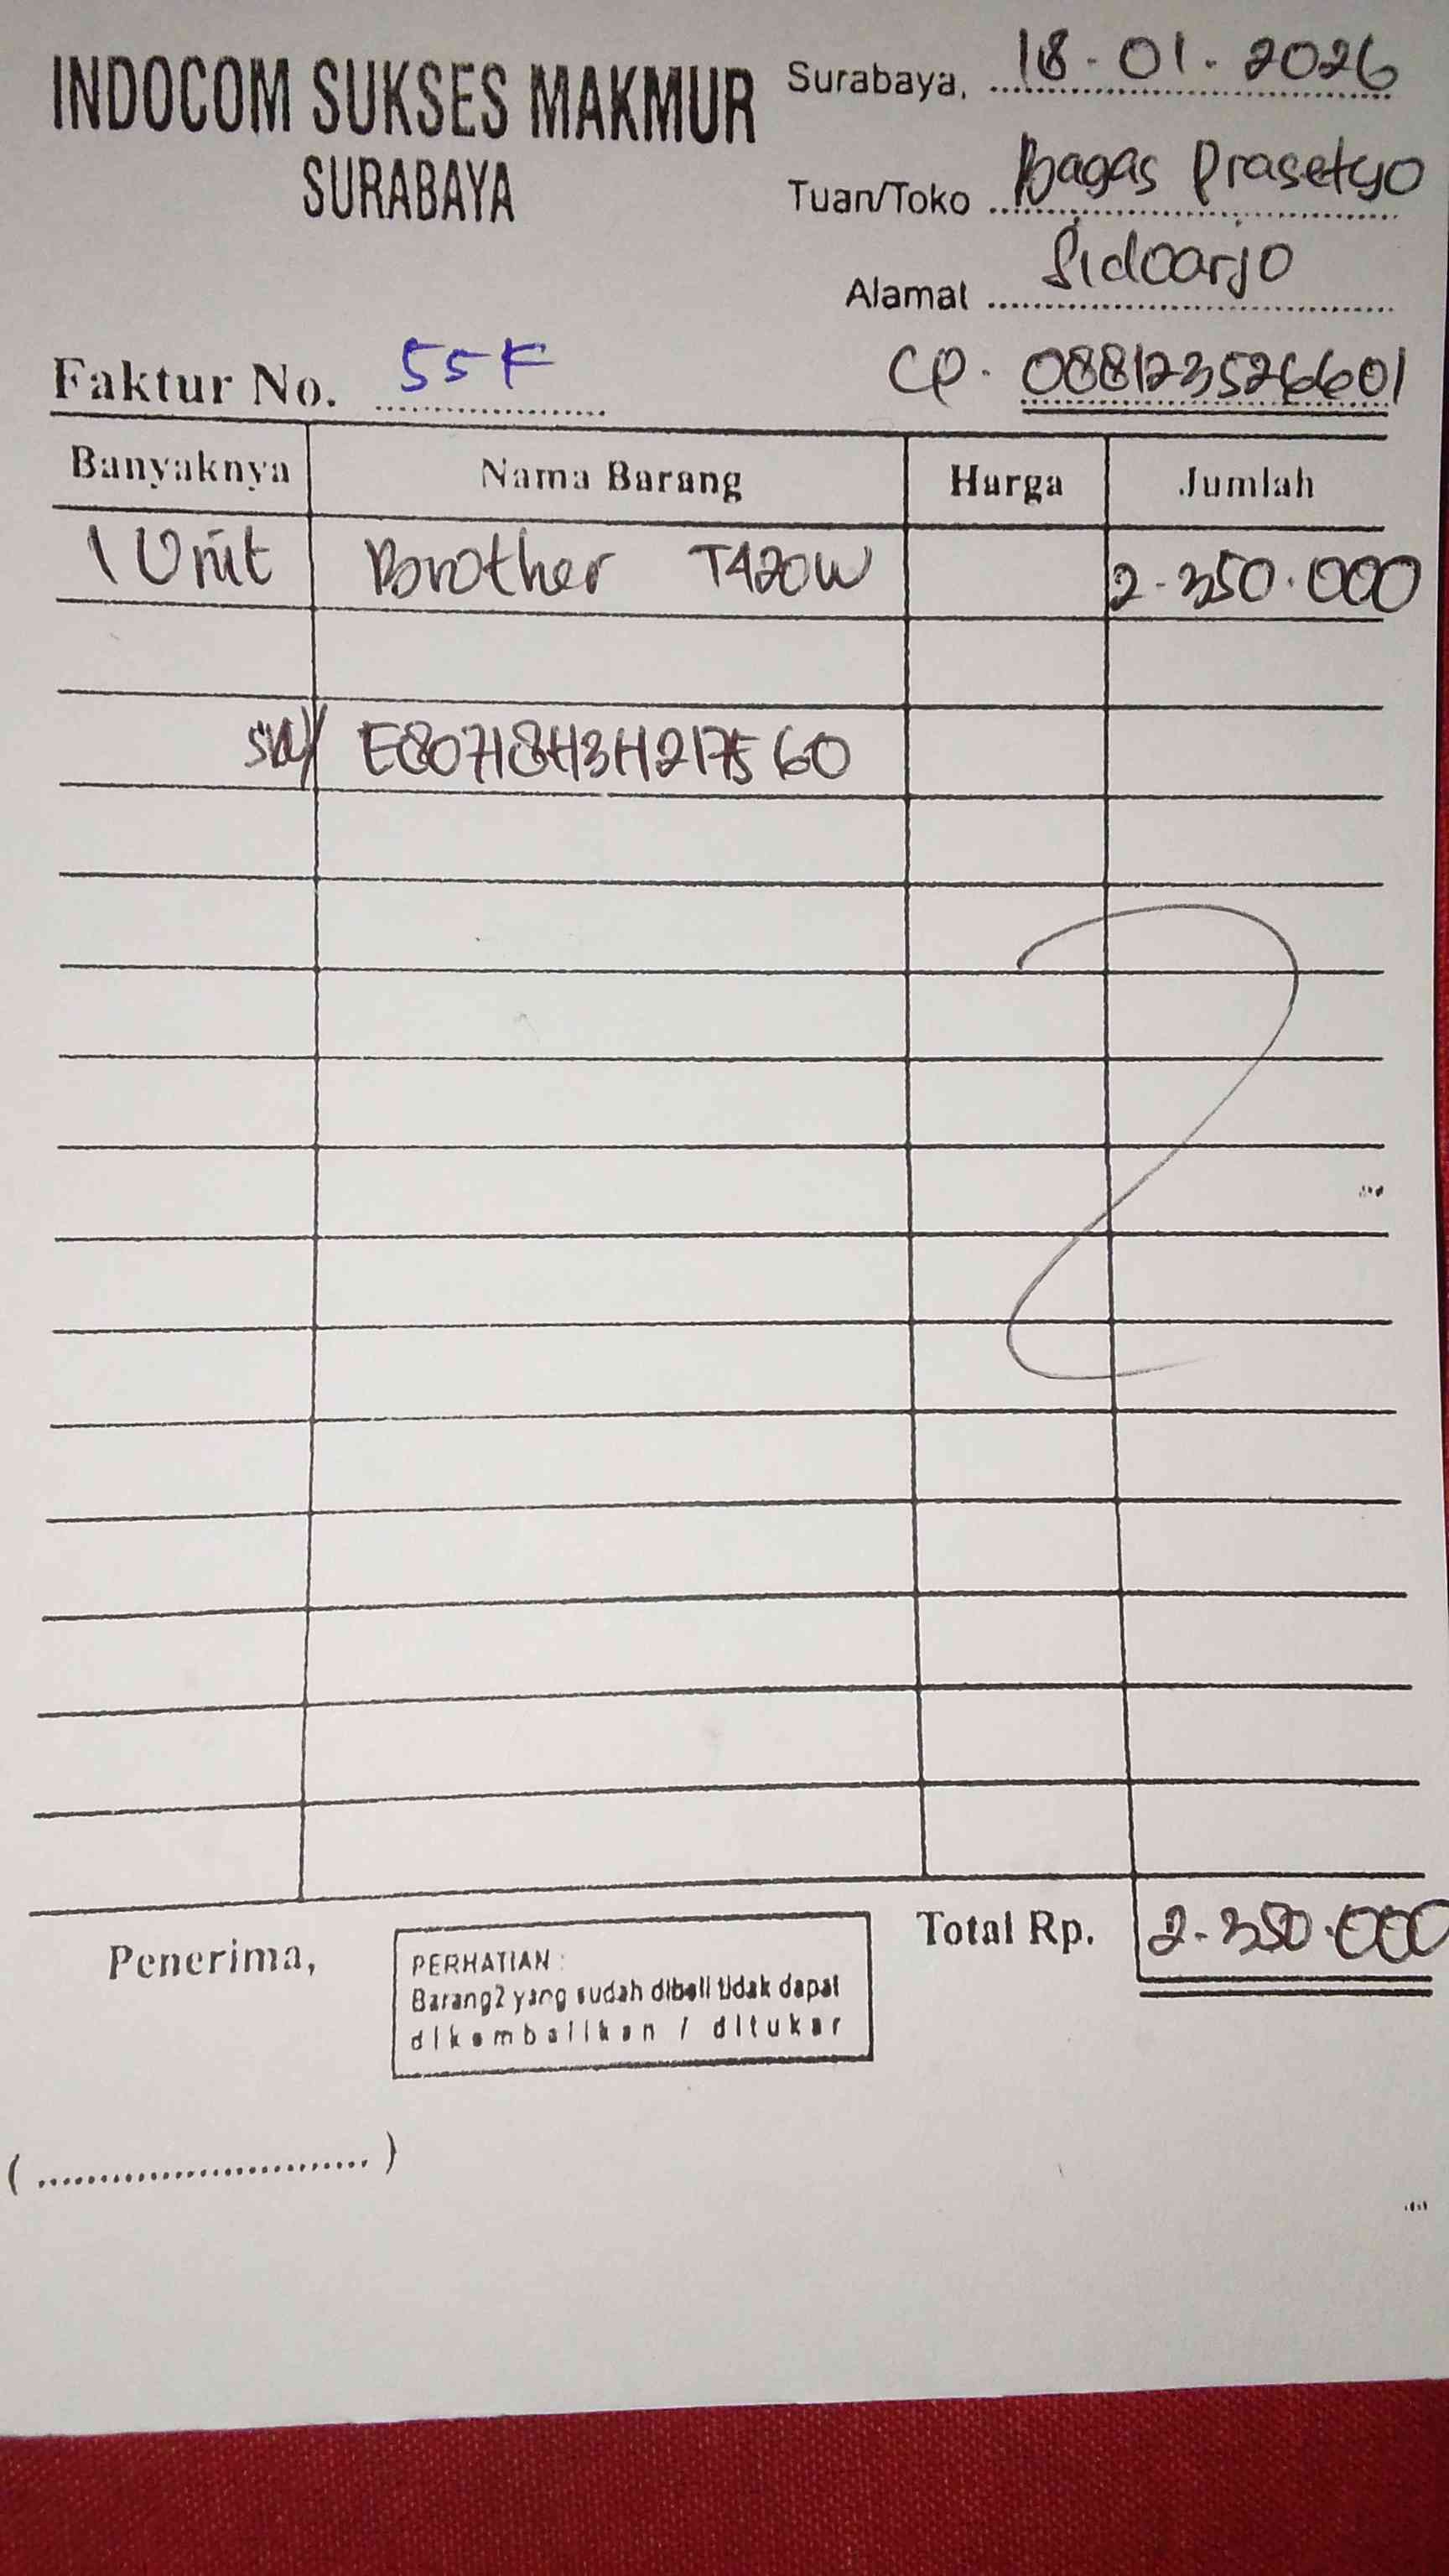 INDOCOM SUKSES MAKMUR
SURABAYA
Surabaya, 18-01-2026
Tuan/Toko Bagas Prasetyo
Alamat Sidoarjo
CP. 088123526601
Faktur No. 55F
Banyaknya Nama Barang Harga Jumlah
1 Unit Brother T420W 2.350.000
SN/ E80718H3H217560
Total Rp. 2.350.000
Penerima,
PERHATIAN :
Barang2 yang sudah dibeli tidak dapat
dikembalikan / ditukar
(..............................)